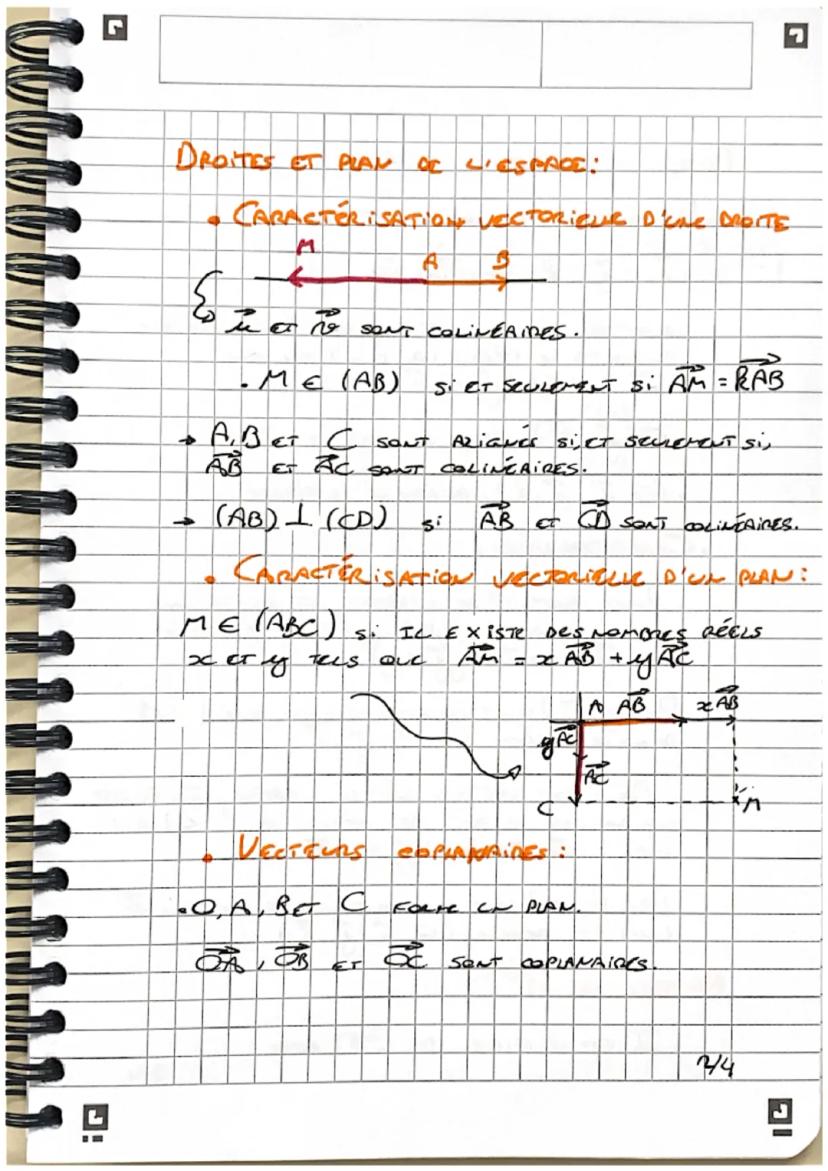 DROITES ET PLAN DE L'ESPACE:
• CARACTÉRISATION VECTORIELLE D'UNE DROITE
M A B
u⃗ ET v⃗ SONT COLINÉAIRES.
• M ∈ (AB) Si ET SEULEMENT Si AM⃗ = kAB⃗
→ A, B ET C SONT ALIGNÉS Si, ET SEULEMENT Si,
AB⃗ ET AC⃗ SONT COLINÉAIRES.
→ (AB) ⊥ (CD) Si AB⃗ ET CD⃗ SONT COLINÉAIRES.
• CARACTÉRISATION VECTORIELLE D'UN PLAN:
M ∈ (ABC) Si IL EXISTE DES NOMBRES RÉELS
x ET y TELS QUE AM⃗ = xAB⃗ + yAC⃗
A AB⃗ xAB⃗
yAC⃗
AC⃗
C M
• VECTEURS COPLANAIRES:
• O, A, B ET C FORME UN PLAN.
OA⃗, OB⃗ ET OC⃗ SONT COPLANAIRES.
2/4